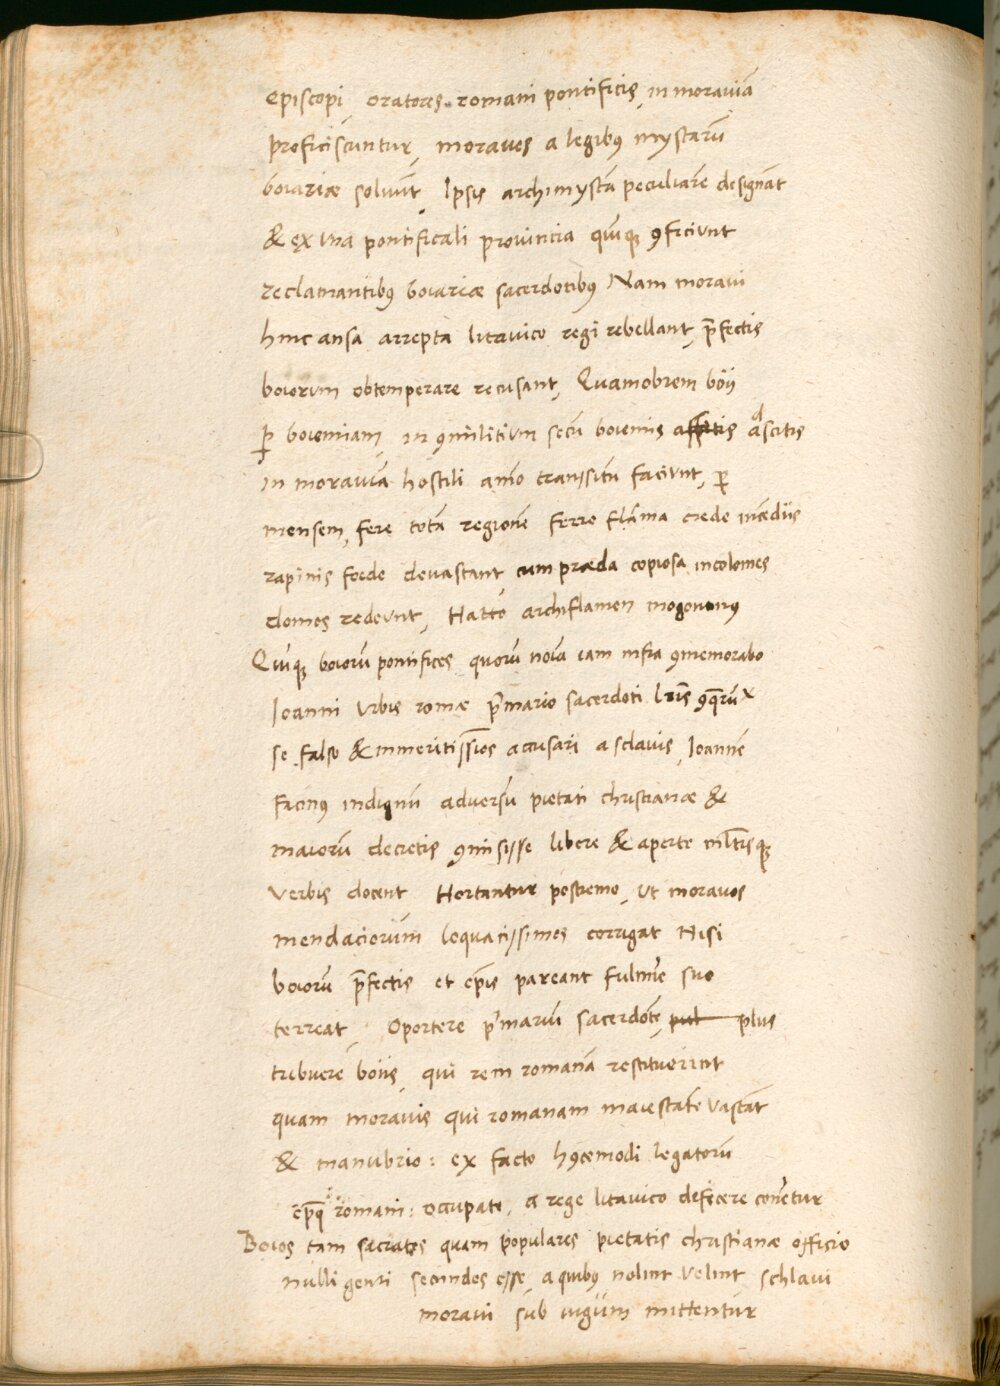 episcopi, oratores romani pontificis, in moraviā
proficiscuntur, moraves a legibꝰ mystarū
boiariæ solvūt, Ipsis archimystā peculiarē designāt
& ex una pontificali provincia quīqꝫ ꝯficiunt
reclamantibꝰ boiariæ sacerdotibꝰ Nam moravi
hinc ansa arrepta litavico regi rebellant, p̄fectis
boiorum obtemperare recusant, Quamobrem boij
ꝑ boiemiam, in ꝯmilitium secū boiemis ascitis
in moraviā hostili aīo transitū faciunt, ꝑ
mensem, fere totā regionē ferro flāma cæde incædiis
rapinis foede devastant cum præda copiosa incolomes
domos redeunt, Hatto archiflamen mogontinꝰ
Quīqꝫ boiorū pontifices quorū noīa iam infra ꝯmemorabo
Ioanni Urbis romæ p̄mario sacerdoti l̄ris ꝯq̄runt
se falso & immeritissīos accusari a sclavis, Ioannē
facinꝰ indignū adversū pietati christianæ &
maiorū decretis ꝯmisisse libere & aperte ml̄tisqꝫ
verbis docent Hortantur postremo, ut moravos
mendaciorum loquacissimos corrigat Nisi
boiorū p̄fectis et ep̄is pareant fulmīe suo
terreat, Oportere p̄marium sacerdotē plus
tribuere boiis, qui rem romanā restituerint
quam moravis qui romanam maiestatē vastāt
& manubrio: ex facto hꝰcemodi legatorū
ep̄iqꝫ romani: occupate, a rege litavico deficere conētur
Boios tam sacratos quam populares pietatis christianæ officio
nulli genti secundos esse, a quibꝰ nolint velint schlavi
moravi sub iugum mittentur